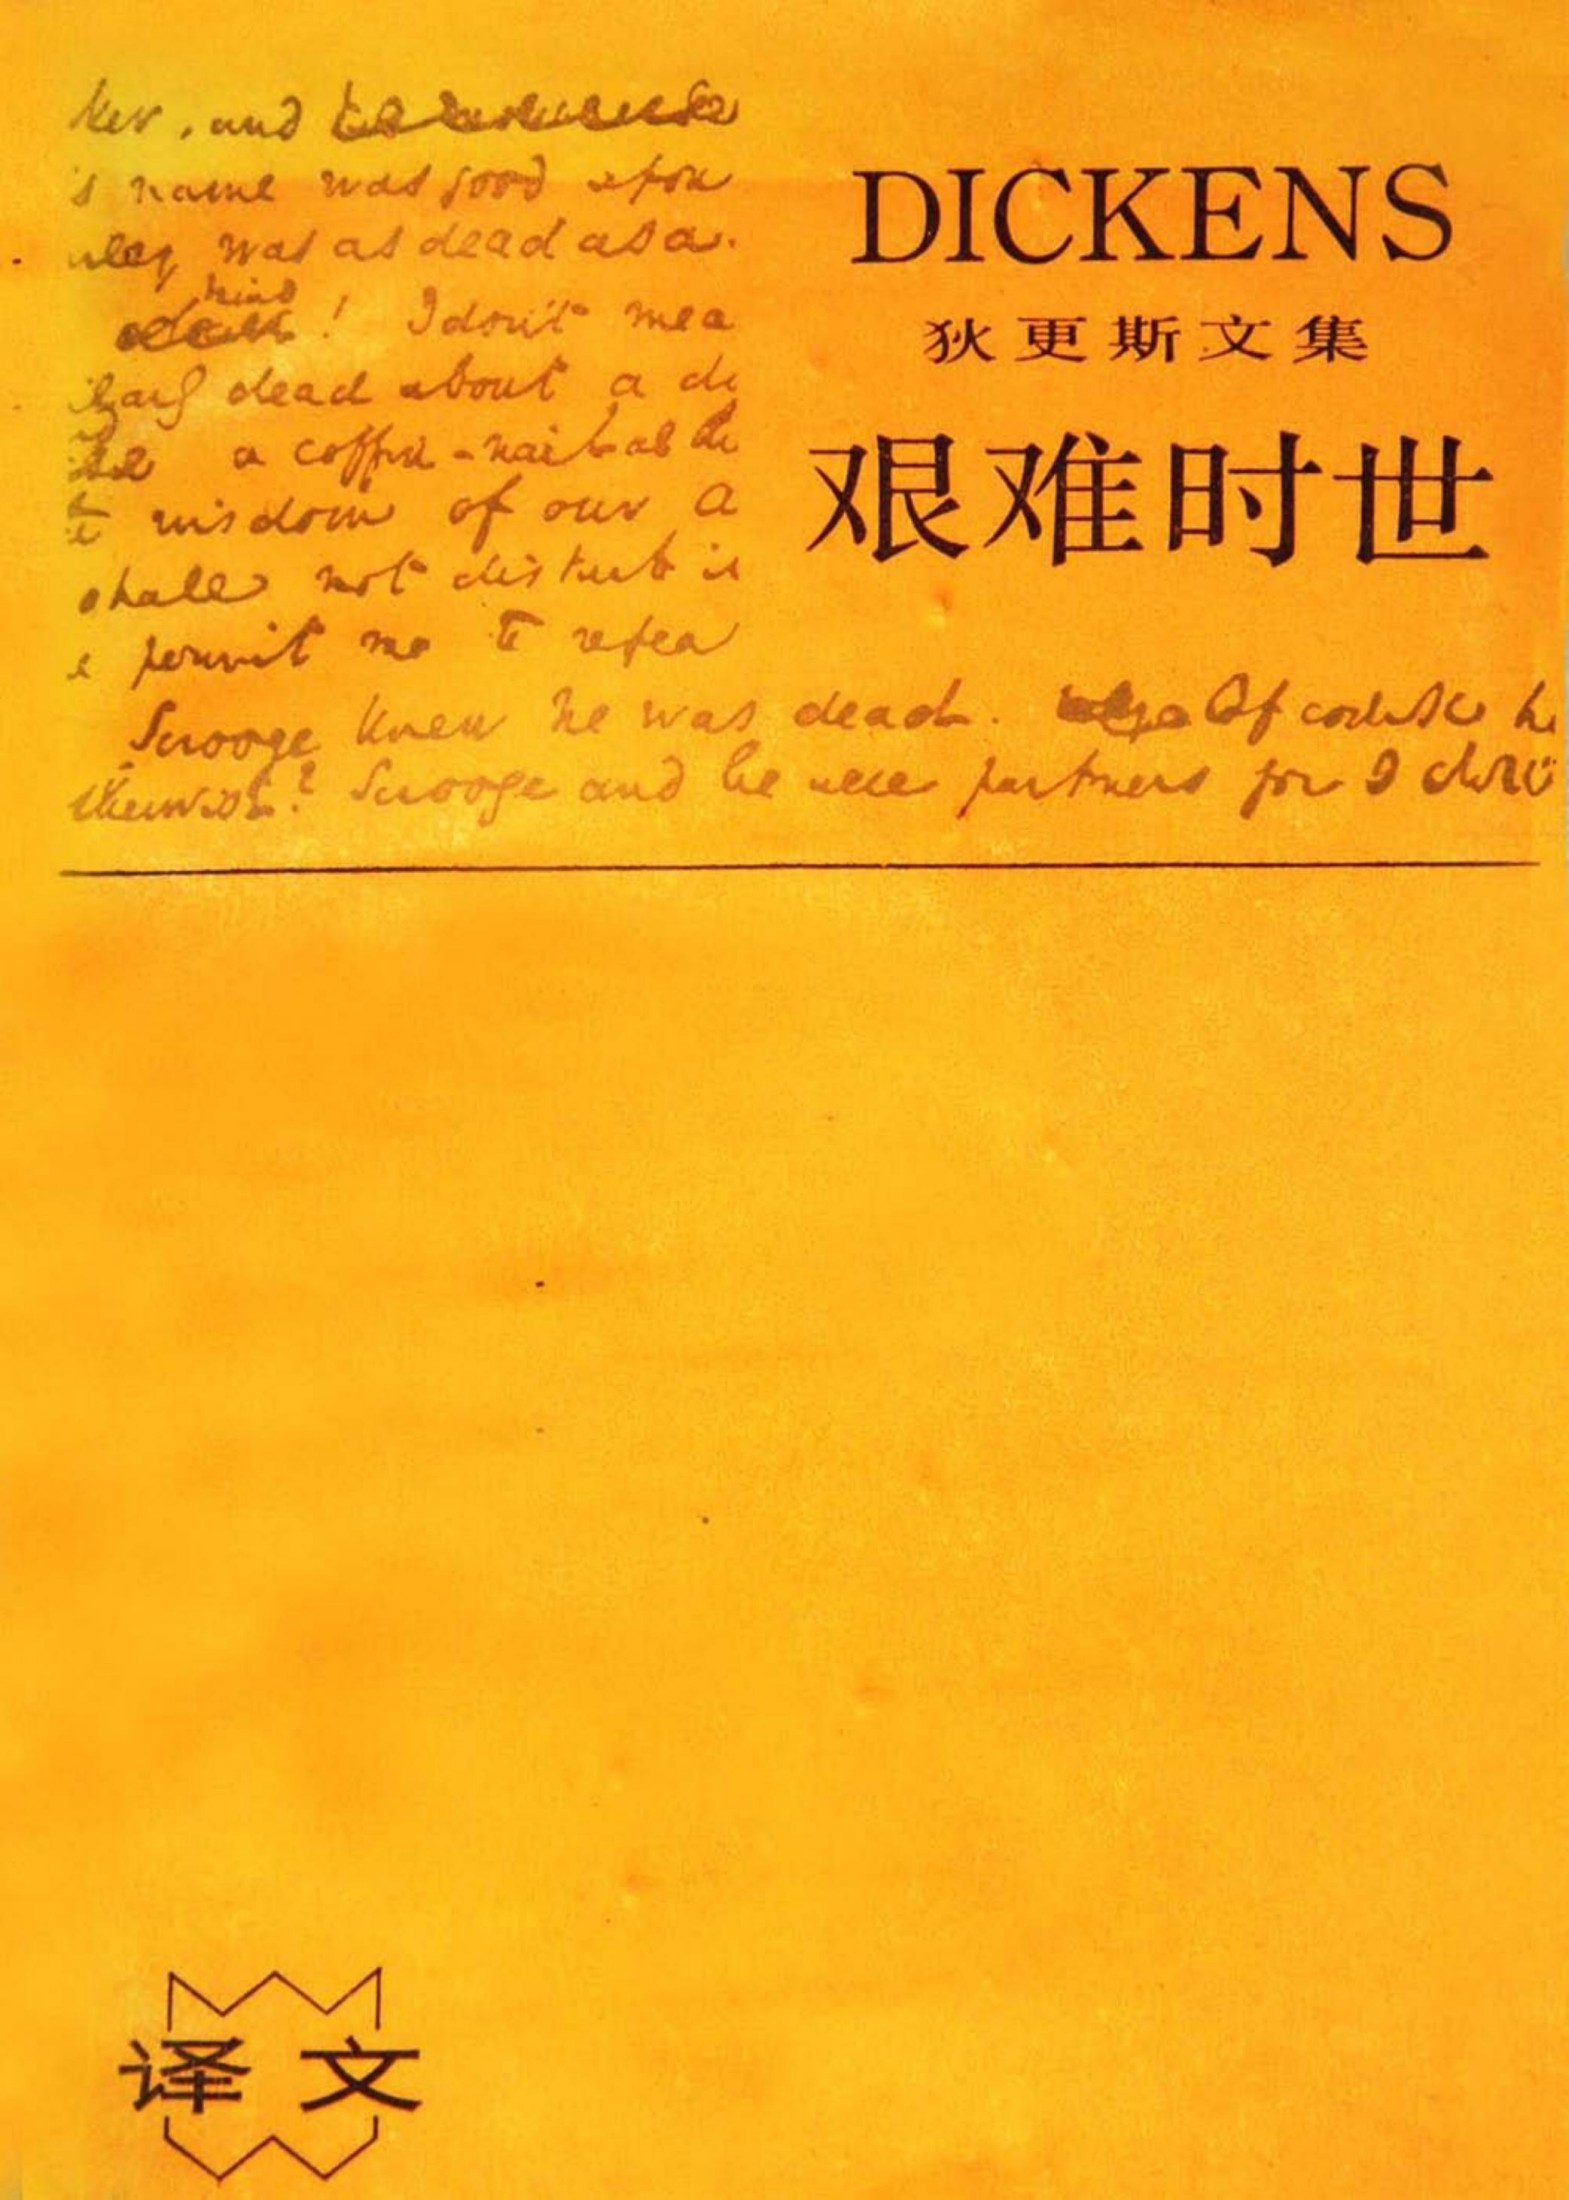 ker, and
's name was good upon
rley was as dead as a
mind
! I don't mea
ularly dead about a de
a coffin-nail as the
wisdom of our a
shall not disturb it
e permit me to repea
Scrooge knew he was dead. Of course h
therwise? Scrooge and he were partners for I don't
DICKENS
狄更斯文集
艰难时世
译文